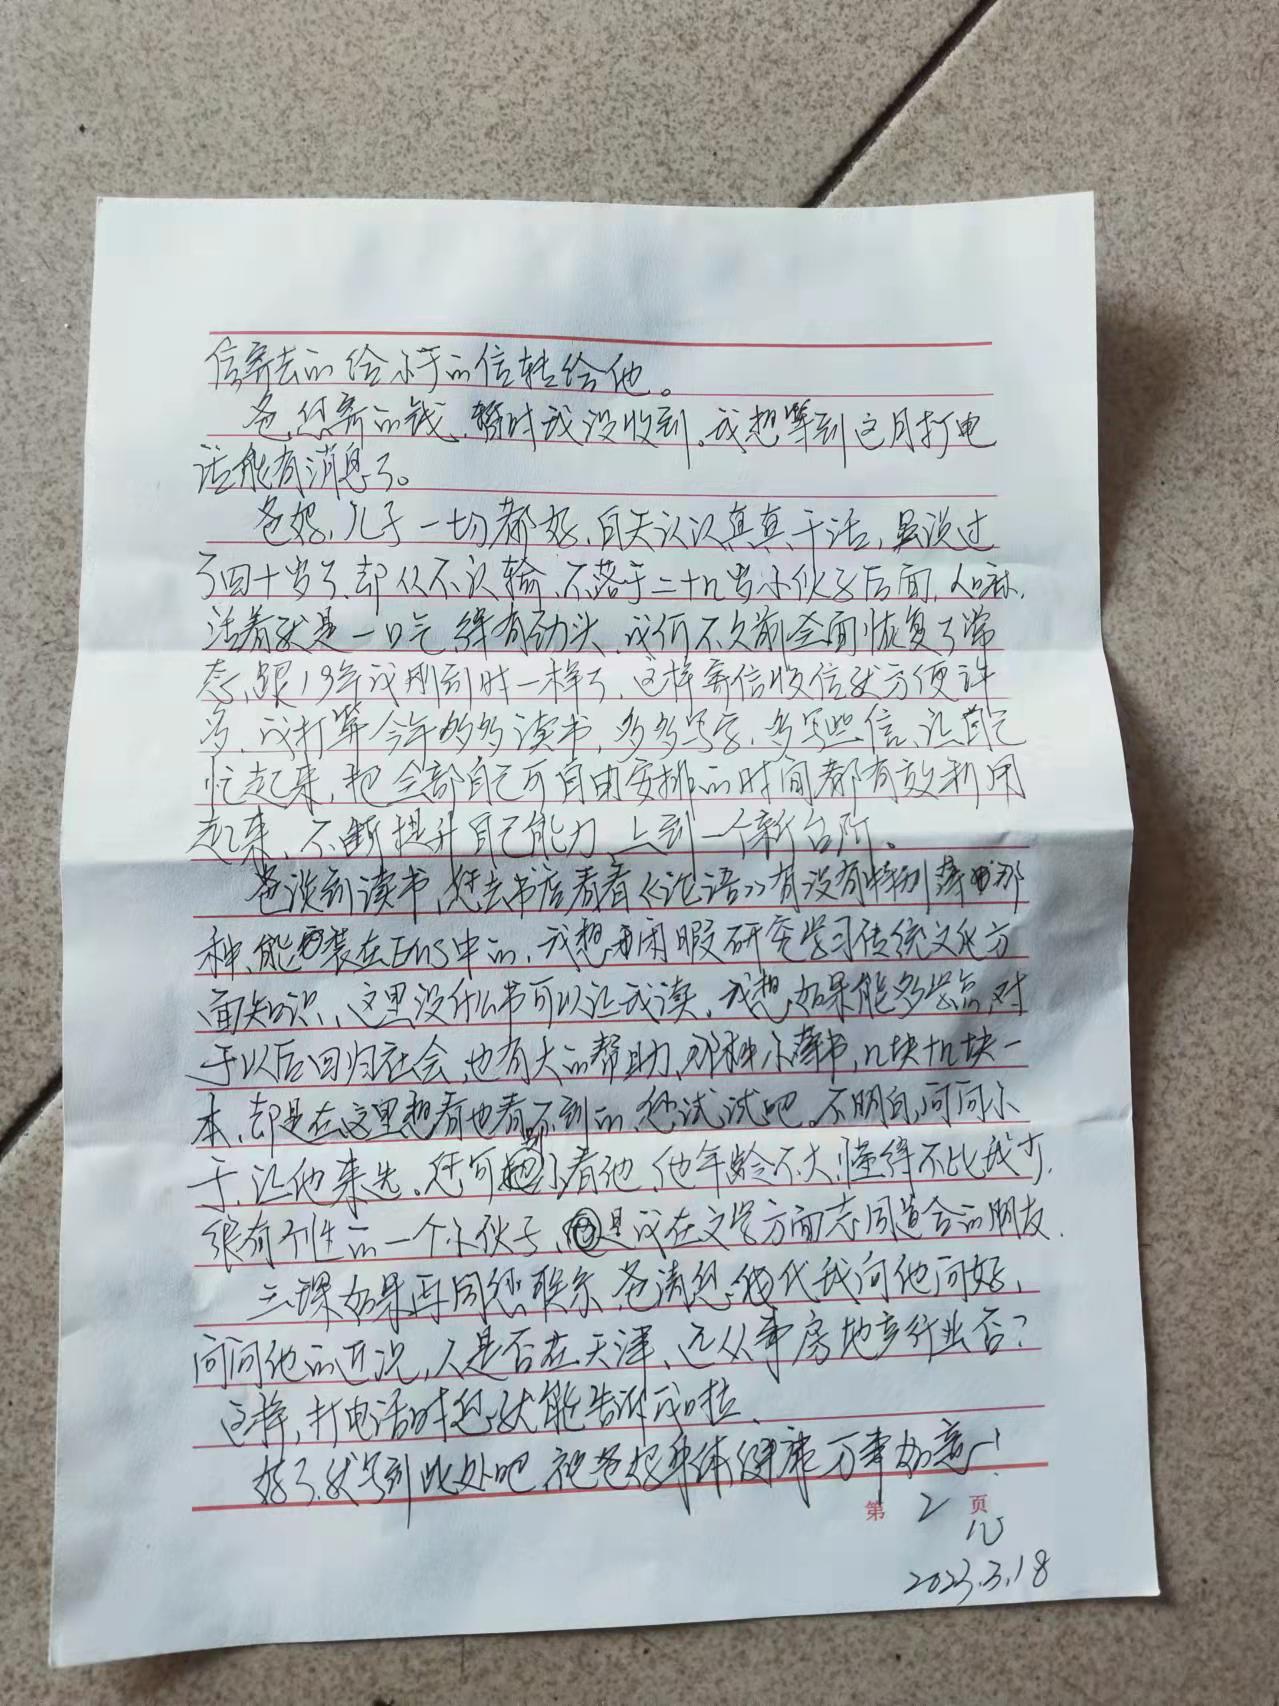 信寄去的给小于的信转给他。
爸,您寄的钱,暂时我没收到。我想等到这月打电
话能有消息了。
爸妈,儿子一切都好,白天认认真真干活,虽说过
了四十岁了,却从不认输,不落于二十几岁小伙子后面,人嘛,
活着就是一口气,得有劲头,我们不久前全面恢复了常
态,跟19年我刚到时一样了,这样寄信收信就方便许
多,我打算今年多多读书,多多写字,多写些信、让自己
忙起来,把全部自己可自由安排的时间都有效利用
起来,不断提升自己能力,上到一个新台阶。
爸谈到读书,您去书店看看《论语》有没有特别薄的那
种,能装在EMS中的,我想用闲暇研究学习传统文化方
面知识,这里没什么书可以让我读,我想,如果能多学点,对
于以后回归社会,也有大的帮助,那种小薄书,几块十几块一
本,却是在这里想看也看不到的,您试试吧。不明白,问问小
于,让他来先。您可别小看他,他年龄不大,懂得不比我少,
很有个性的一个小伙子,是我在文学方面志同道合的朋友.
三课如果再同您联系,爸请您代我向他问好,
问问他的近况,人是否在天津、还从事房地产行业否?
这样,打电话时您就能告诉我啦.
好了,就写到此处吧,祝爸妈身体健康万事如意!
第 2 页
2023.3.18